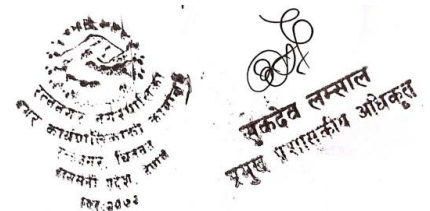 रत्ननगर नगरपालिका
नगर कार्यपालिकाको कार्यालय
रत्ननगर, चितवन
बागमती प्रदेश, नेपाल
सुकदेव लम्साल
प्रमुख प्रशासकीय अधिकृत